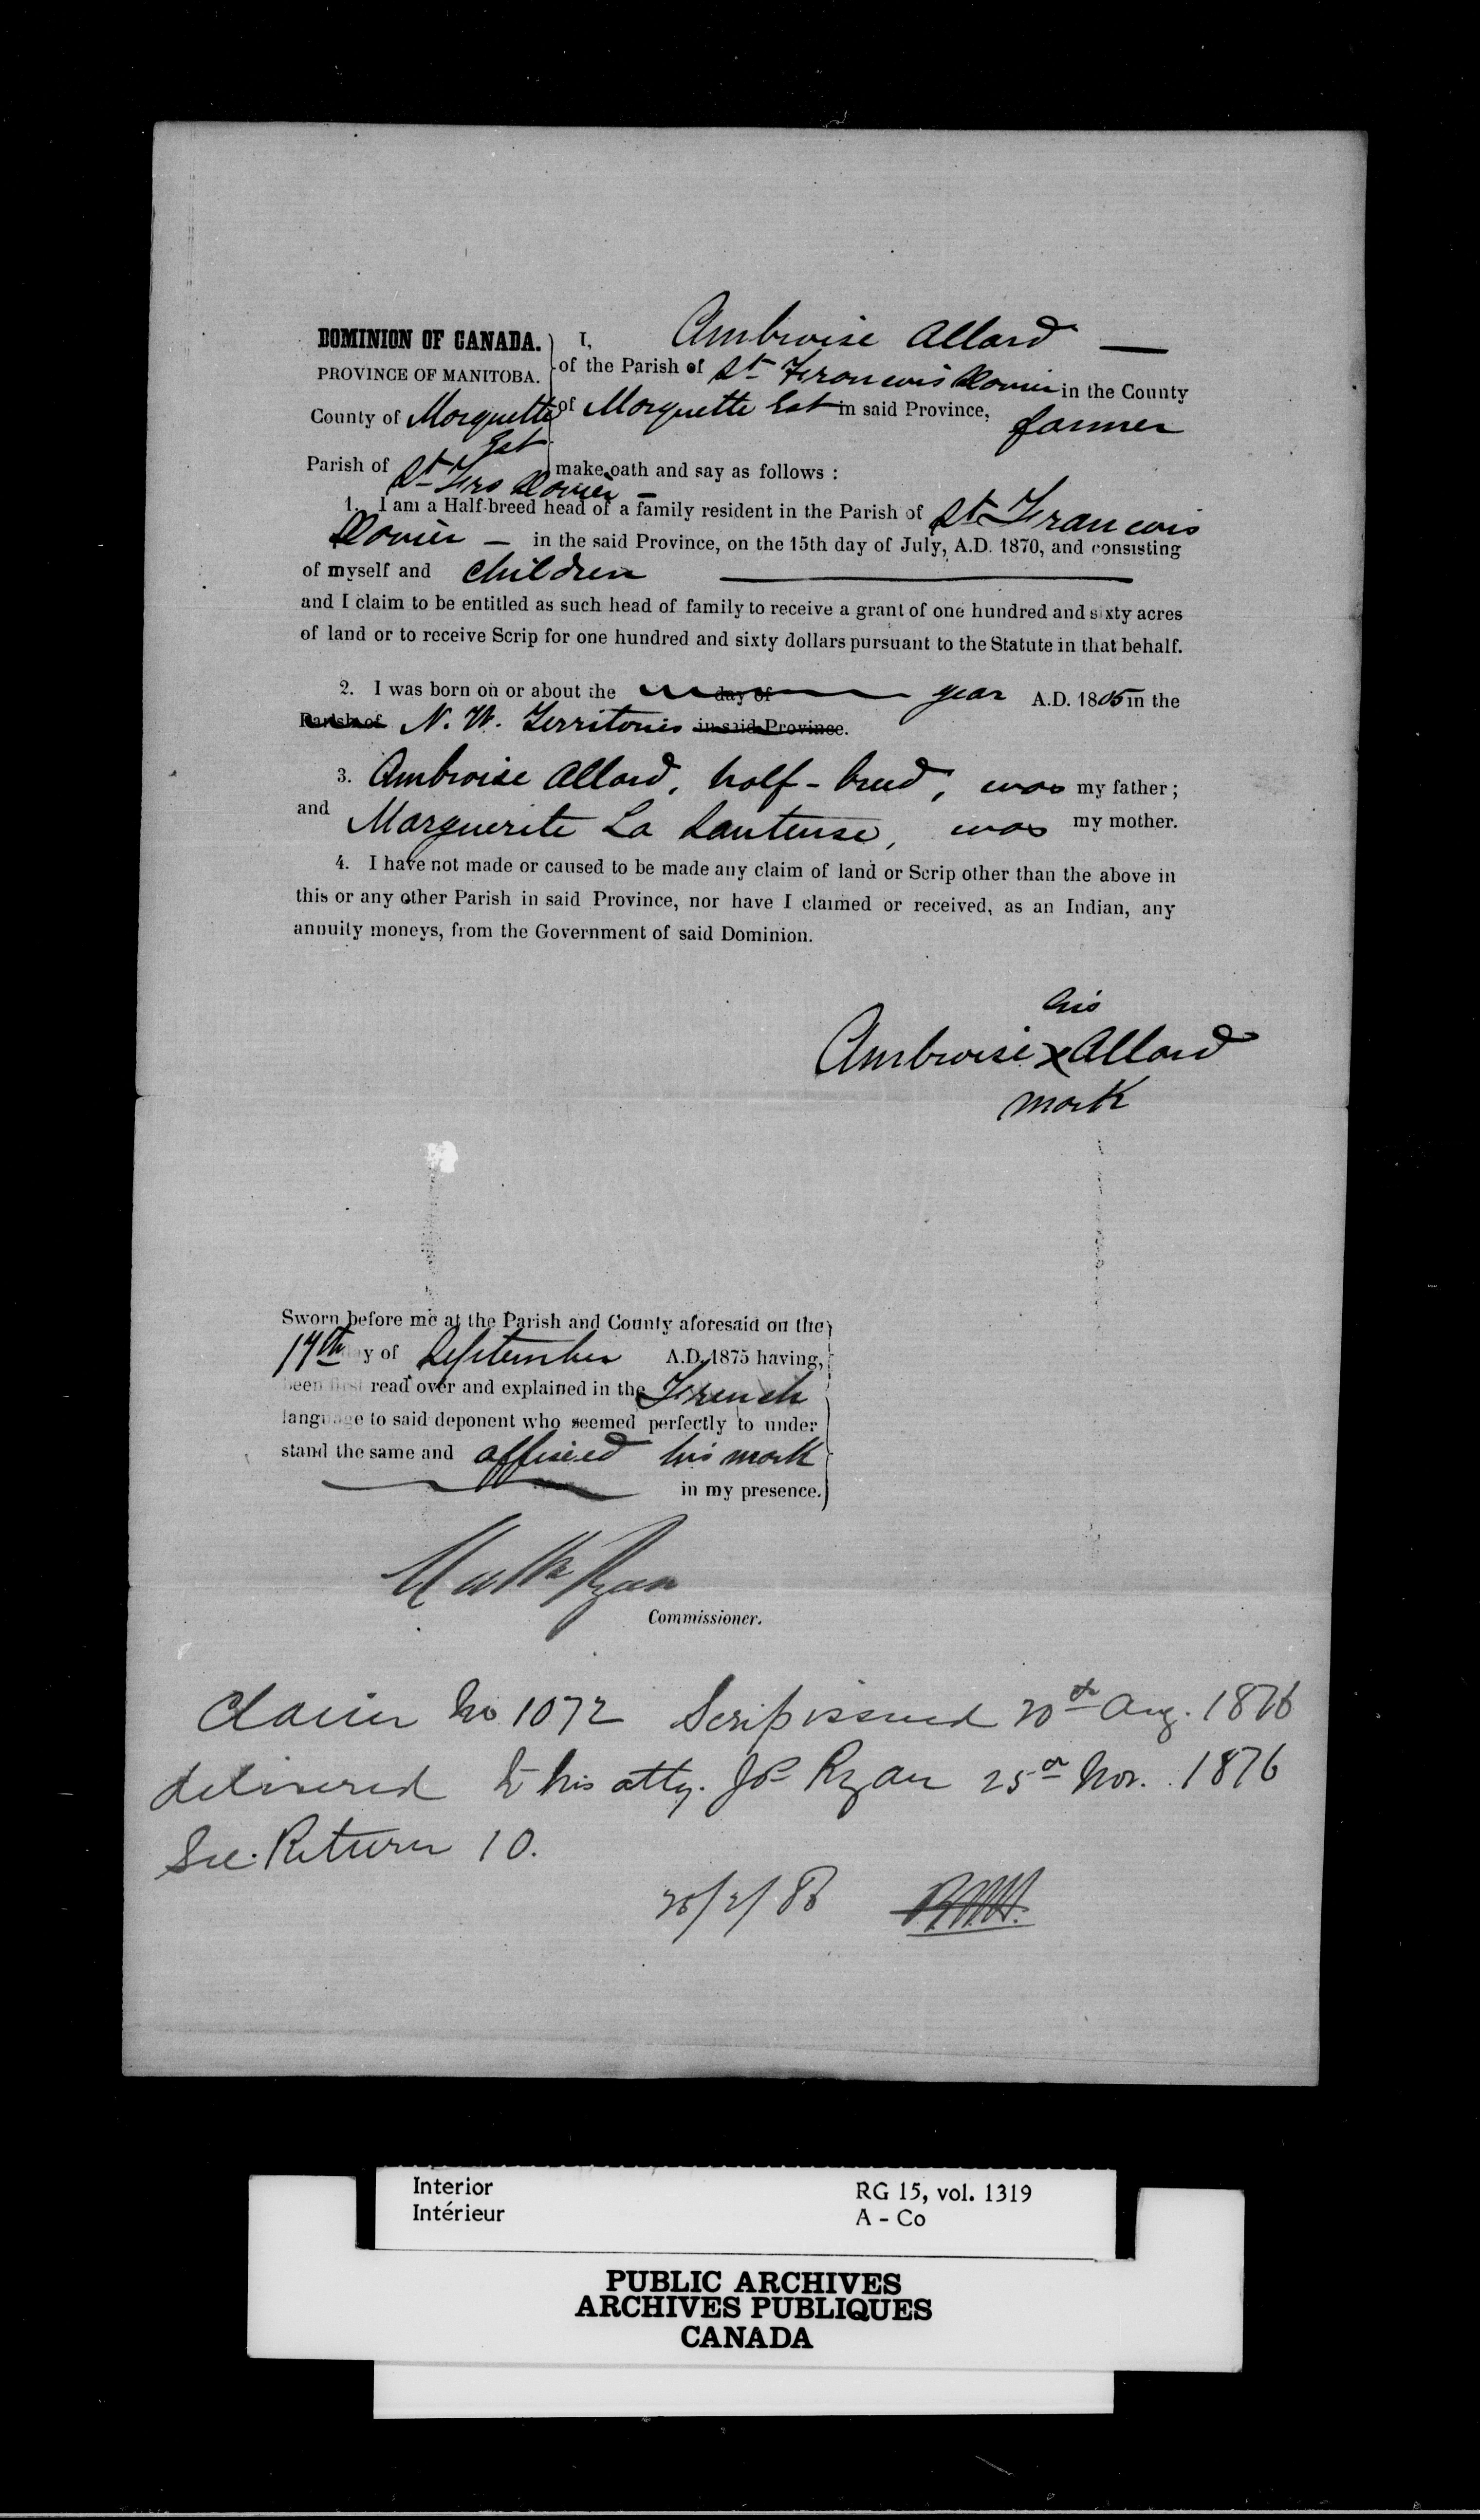 DOMINION OF CANADA.
PROVINCE OF MANITOBA.
County of Marquette
Est
Parish of St Frs Xavier —
I, Ambroise Allard —
of the Parish of St Francois Xavier in the County
of Marquette Est in said Province, farmer
make oath and say as follows :
1. I am a Half-breed head of a family resident in the Parish of St Francois
Xavier — in the said Province, on the 15th day of July, A.D. 1870, and consisting
of myself and children
and I claim to be entitled as such head of family to receive a grant of one hundred and sixty acres
of land or to receive Scrip for one hundred and sixty dollars pursuant to the Statute in that behalf.
2. I was born on or about the day of year A.D. 1805 in the
Parish of N. W. Territories in said Province.
3. Ambroise Allard, half-breed, was my father ;
and Marguerite La Sauteuse, was my mother.
4. I have not made or caused to be made any claim of land or Scrip other than the above in
this or any other Parish in said Province, nor have I claimed or received, as an Indian, any
annuity moneys, from the Government of said Dominion.
his
Ambroise x Allard
mark
Sworn before me at the Parish and County aforesaid on the
17th day of September A.D. 1875 having,
been first read over and explained in the French
language to said deponent who seemed perfectly to under
stand the same and affixed his mark
in my presence.
Matth Ryan
Commissioner.
Claim No 1072 Scrip issued 20th Aug. 1876
delivered to his atty. Jos Ryan 25th Nov. 1876
See Return 10.
Interior
Intérieur
RG 15, vol. 1319
A - Co
PUBLIC ARCHIVES
ARCHIVES PUBLIQUES
CANADA